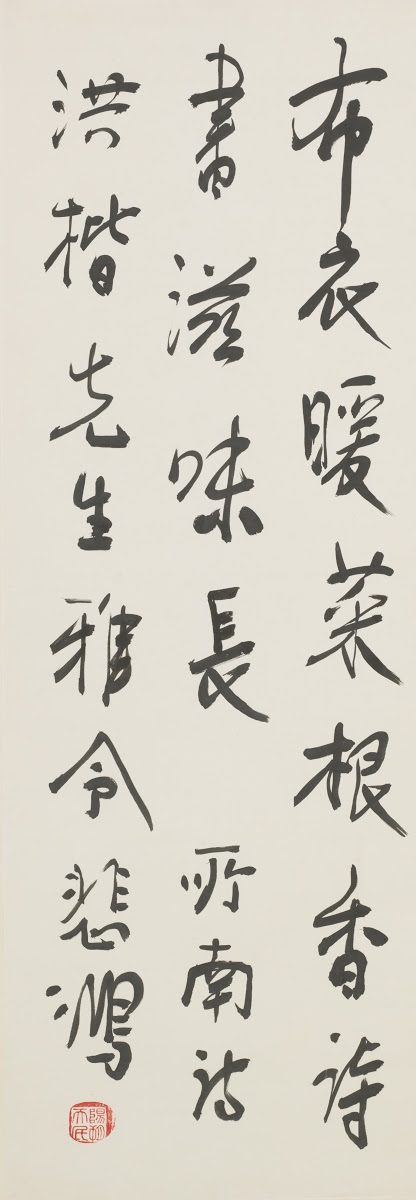 布衣暖菜根香詩
書滋味長 所南詩
洪楷先生雅令悲鴻